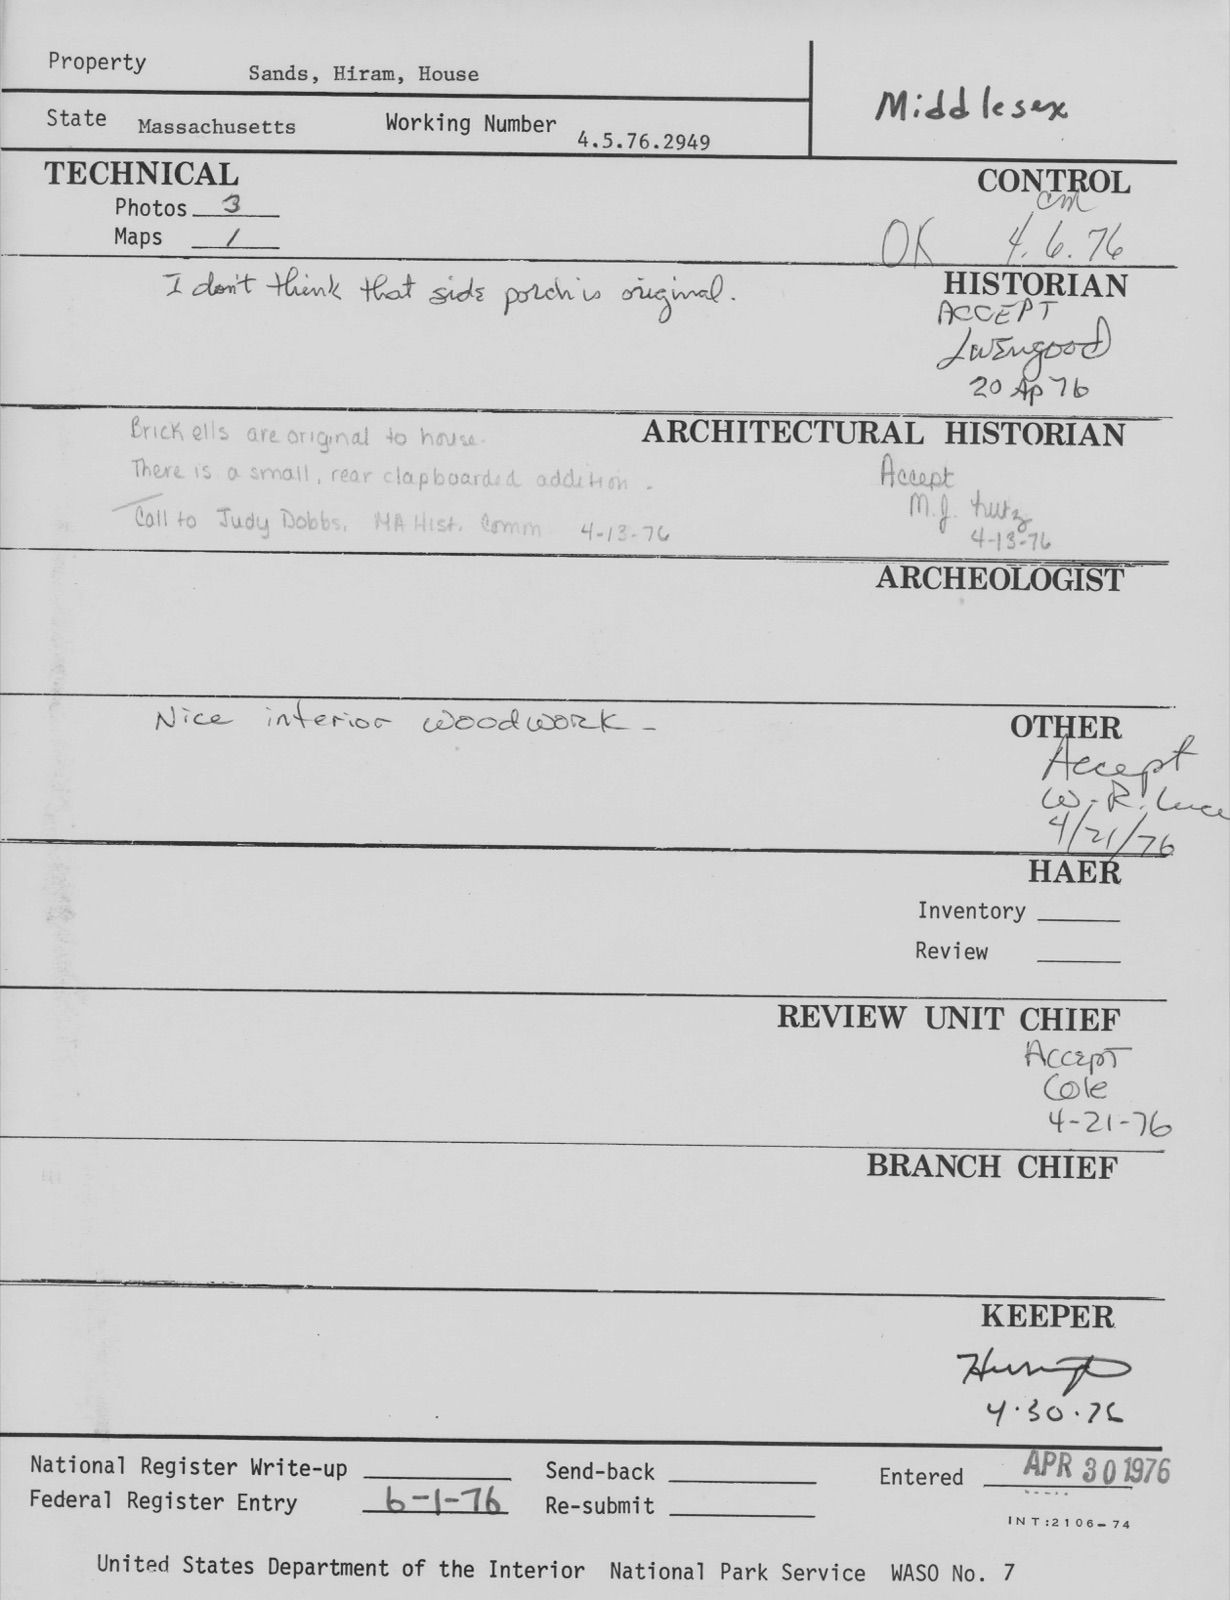 Property Sands, Hiram, House
Middlesex
State Massachusetts Working Number 4.5.76.2949
TECHNICAL
Photos 3
Maps 1
CONTROL
cm
OK 4.6.76
I don't think that side porch is original.
HISTORIAN
ACCEPT
Livengood
20 Ap 76
Brick ells are original to house.
There is a small, rear clapboarded addition.
Call to Judy Dobbs, MA Hist. Comm 4-13-76
ARCHITECTURAL HISTORIAN
Accept
M.J.
4-13-76
ARCHEOLOGIST
Nice interior woodwork -
OTHER
Accept
W. R. Luce
4/21/76
HAER
Inventory
Review
REVIEW UNIT CHIEF
Accept
Cole
4-21-76
BRANCH CHIEF
KEEPER
4.30.76
National Register Write-up Send-back Entered APR 30 1976
Federal Register Entry 6-1-76 Re-submit
INT:2106-74
United States Department of the Interior National Park Service WASO No. 7